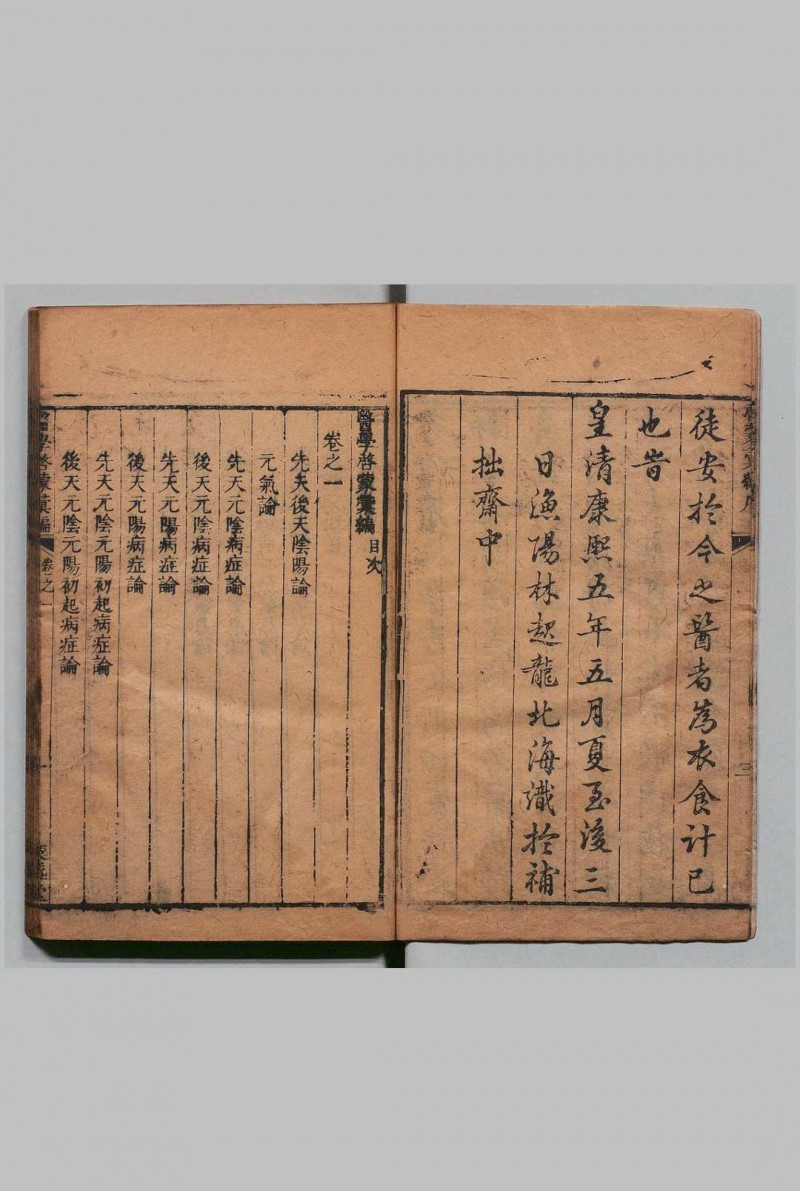 徒安於今之醫者為衣食計已
也旹
皇清康熙五年五月夏至後三
日漁陽林起龍北海識於補
拙齋中
三
醫學啓蒙彙編目次
卷之一
先天後天陰陽論
元氣論
先天元陰病症論
後天元陰病症論
先天元陽病症論
後天元陽病症論
先天元陰元陽初起病症論
後天元陰元陽初起病症論
醫學啓蒙彙編
卷之一